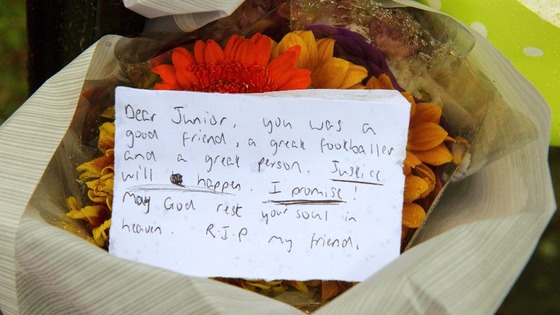 Dear Junior, you was a
good friend, a great footballer
and a great person. Justice
will happen. I promise!
May God rest your soul in
heaven. R.I.P my friend.